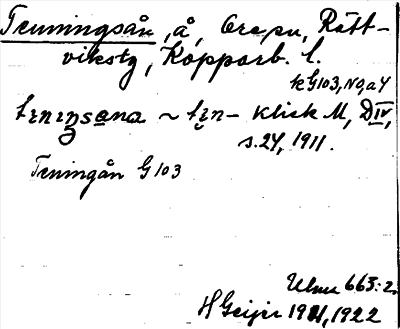 Tenningsån, å, Ore sn, Rätt-
vikstg, Kopparb. l.
k G103, NO, a 4
tenıngsana ~ ten- Klick M, DIV,
s. 24, 1911.
Teningån G 103
Ulma 663:2.
H Geijer 1921, 1922